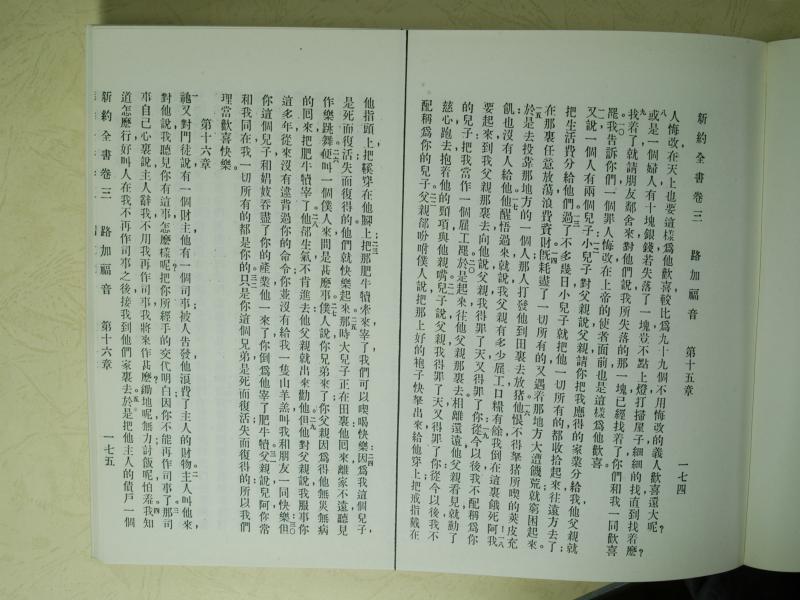 新約全書卷三　路加福音　第十五章　一七四
人悔改在天上也要這樣爲他歡喜較比爲九十九個不用悔改的義人歡喜還大呢
八或是一個婦人有十塊銀錢若失落了一塊豈不點上燈打掃屋子細細的找直到找着麼
九找着了就請朋友鄰舍來對他們說我所失落的那一塊已經找着了你們和我一同歡喜
罷一〇我告訴你們一個罪人悔改在上帝的使者面前也是這樣爲他歡喜
一一又說一個人有兩個兒子一二小兒子對父親說父親請你把我應得的家業分給我他父親就
把生活費分給他們一三過了不多幾日小兒子就把他一切所有的都收拾起來往遠方去了
在那裏任意放蕩浪費貲財一四旣耗盡了一切所有的又遇着那地方大遭饑荒就窮困起來
一五於是去投靠那地方的一個人那人打發他到田裏去放豬一六他恨不得拏豬所喫的莢皮充
飢也沒有人給他一七他醒悟過來就說我父親有多少雇工口糧有餘我倒在這裏餓死阿一八我
要起來到我父親那裏去向他說父親我得罪了天又得罪了你一九從今以後我不配稱爲你
的兒子把我當作一個雇工罷二〇於是起來往他父親那裏去相離還遠他父親看見就動了
慈心跑去抱着他的頸項與他親嘴二一兒子說父親我得罪了天又得罪了你從今以後我不
配稱爲你的兒子二二父親卻吩咐僕人說把那上好的袍子快拏出來給他穿上把戒指戴在
他指頭上把鞋穿在他腳上二三把那肥牛犢牽來宰了我們可以喫喝快樂二四因爲我這個兒子
是死而復活失而復得的他們就快樂起來二五那時大兒子正在田裏他回來離家不遠聽見
作樂跳舞二六便叫一個僕人來問是甚麽事二七僕人說你兄弟來了你父親因爲得他無災無病
的回來把肥牛犢宰了二八他卻生氣不肯進去他父親就出來勸他二九但他對父親說我服事你
這多年從來沒有違背過你的命令你並沒有給我一隻山羊羔叫我和朋友一同快樂三〇但
你這個兒子和娼妓吞盡了你的產業他一來了你倒爲他宰了肥牛犢三一父親說兒阿你常
和我同在我一切所有的都是你的三二只是你這個兄弟是死而復活失而復得的所以我們
理當歡喜快樂
第十六章
一祂又對門徒說有一個財主他有一個司事被人告發他浪費了主人的財物二主人叫他來
對他說我聽見你有這事怎麽樣呢把你所經手的交代明白因你不能再作司事了三那司
事自己心裏說主人辭我不用我再作司事我將來作甚麽鋤地呢無力討飯呢怕羞四我知
道怎麼行好叫人在我不再作司事之後接我到他們家裏去五於是把他主人的債戶一個
新約全書卷三　路加福音　第十六章　一七五